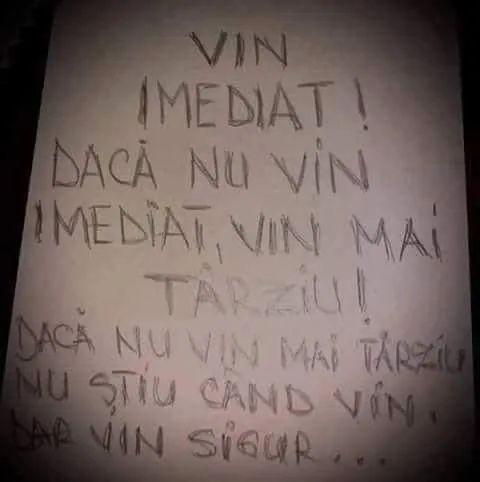 VIN
IMEDIAT!
DACĂ NU VIN
IMEDIAT, VIN MAI
TÂRZIU!
DACĂ NU VIN MAI TÂRZIU
NU ȘTIU CÂND VIN.
DAR VIN SIGUR...